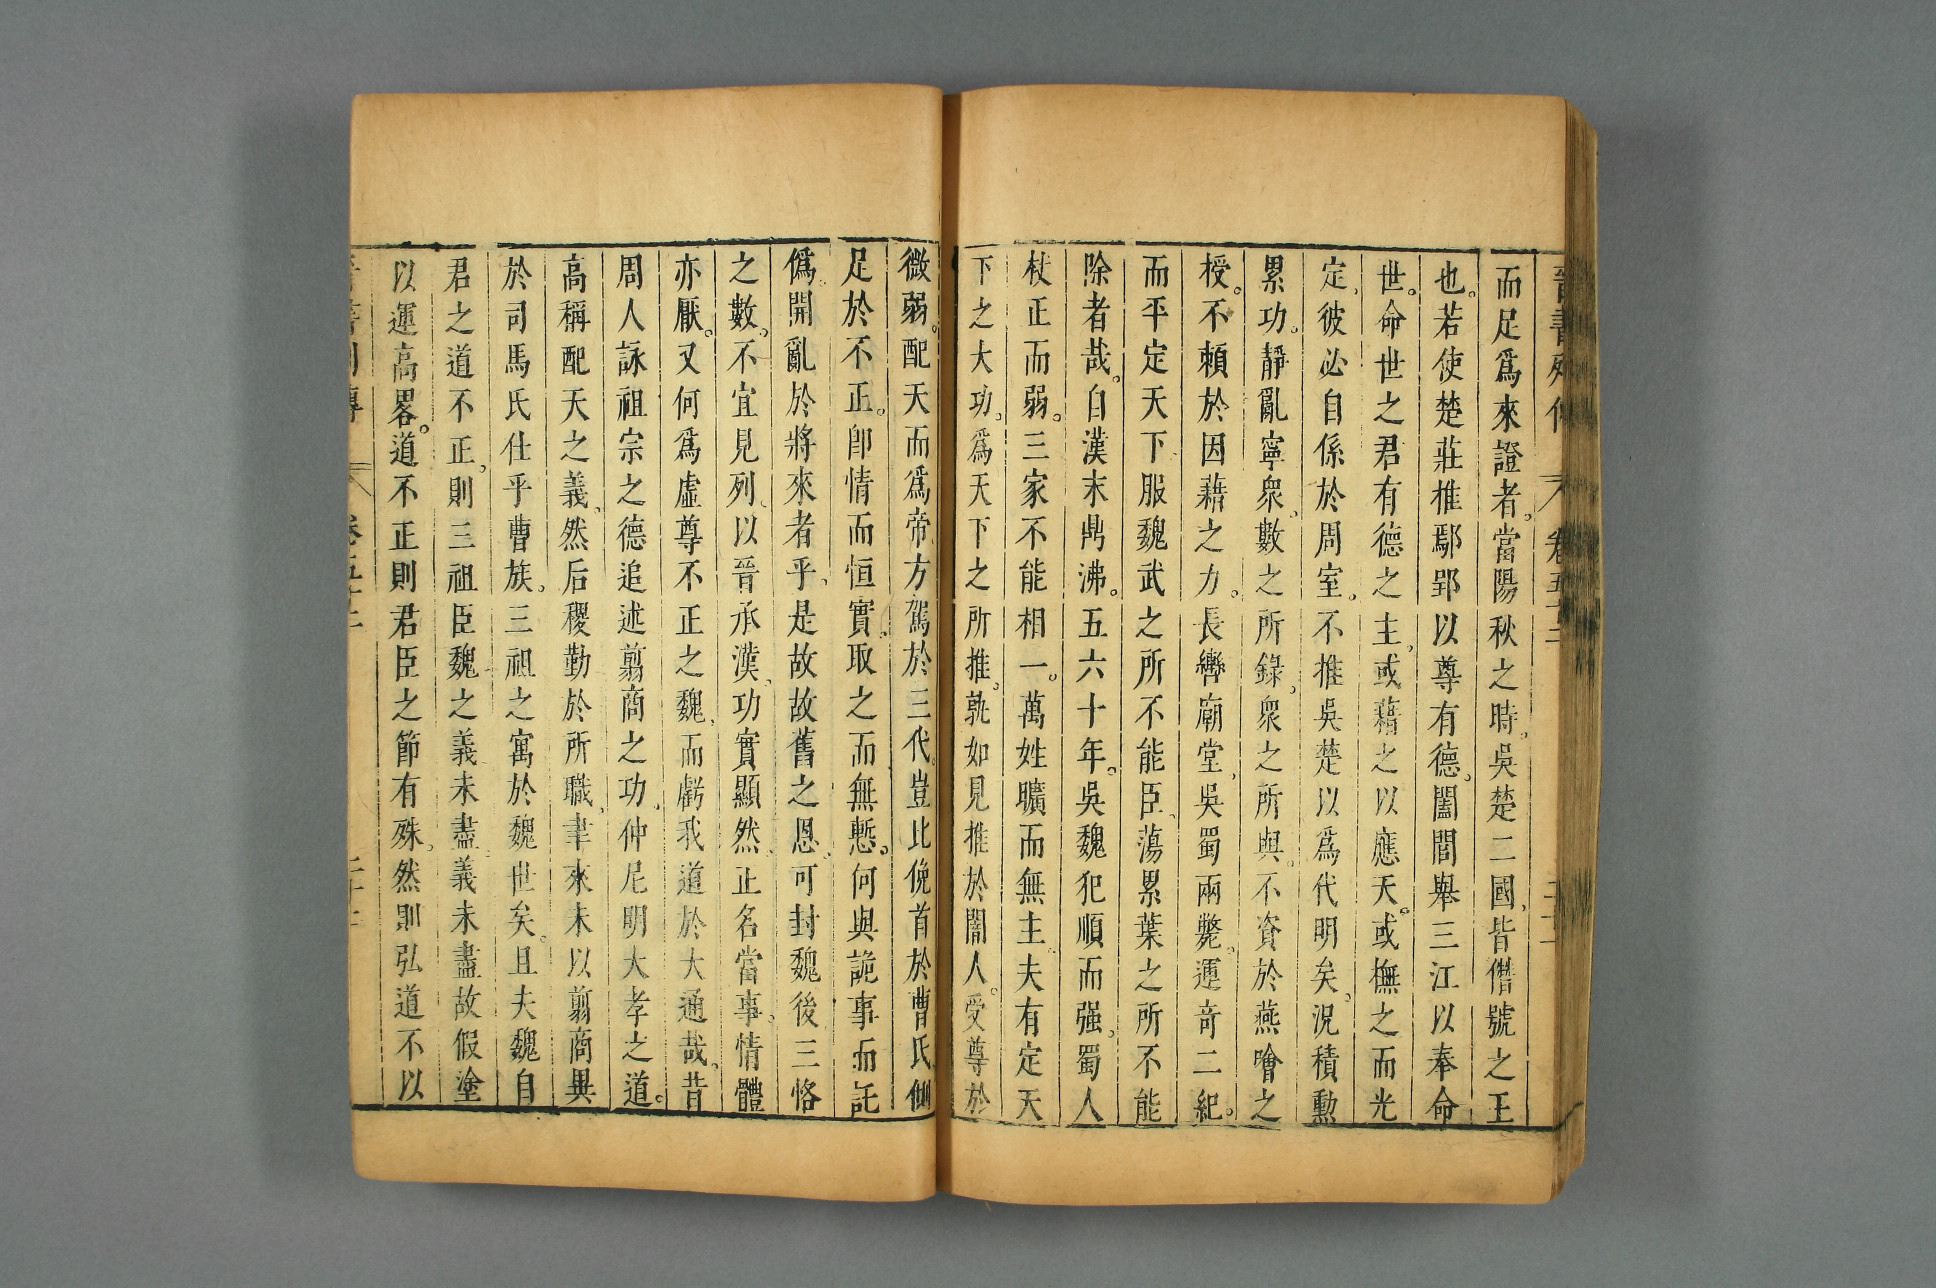 而足爲來證者。當陽秋之時。吳楚二國。皆僭號之王
也。若使楚莊推鄢郢以尊有德。闔閭舉三江以奉命
世。命世之君有德之主。或藉之以應天。或撫之而光
定。彼必自係於周室。不推吳楚以爲代明矣。況積勳
累功。靜亂寧衆。數之所錄。衆之所與。不資於燕噲之
授。不賴於因藉之力。長轡廟堂。吳蜀兩斃。運奇二紀。
而平定天下。服魏武之所不能臣。蕩累葉之所不能
除者哉。自漢末鼎沸。五六十年。吳魏犯順而强。蜀人
杖正而弱。三家不能相一。萬姓曠而無主。夫有定天
下之大功。爲天下之所推。孰如見推於闇人。受尊於
微弱。配天而爲帝。方駕於三代。豈比俛首於曹氏。側
足於不正。卽情而恒實。取之而無慙。何與詭事而託
僞。開亂於將來者乎。是故故舊之恩。可封魏後三恪
之數。不宜見列。以晉承漢。功實顯然。正名當事。情體
亦厭。又何爲虛尊不正之魏。而虧我道於大通哉。昔
周人詠祖宗之德。追述翦商之功。仲尼明大孝之道。
高稱配天之義。然后稷勤於所職。聿來未以翦商異
於司馬氏仕乎曹族。三祖之寓於魏世矣。且夫魏自
君之道不正。則三祖臣魏之義未盡。義未盡故假塗
以運高畧。道不正則君臣之節有殊。然則弘道不以